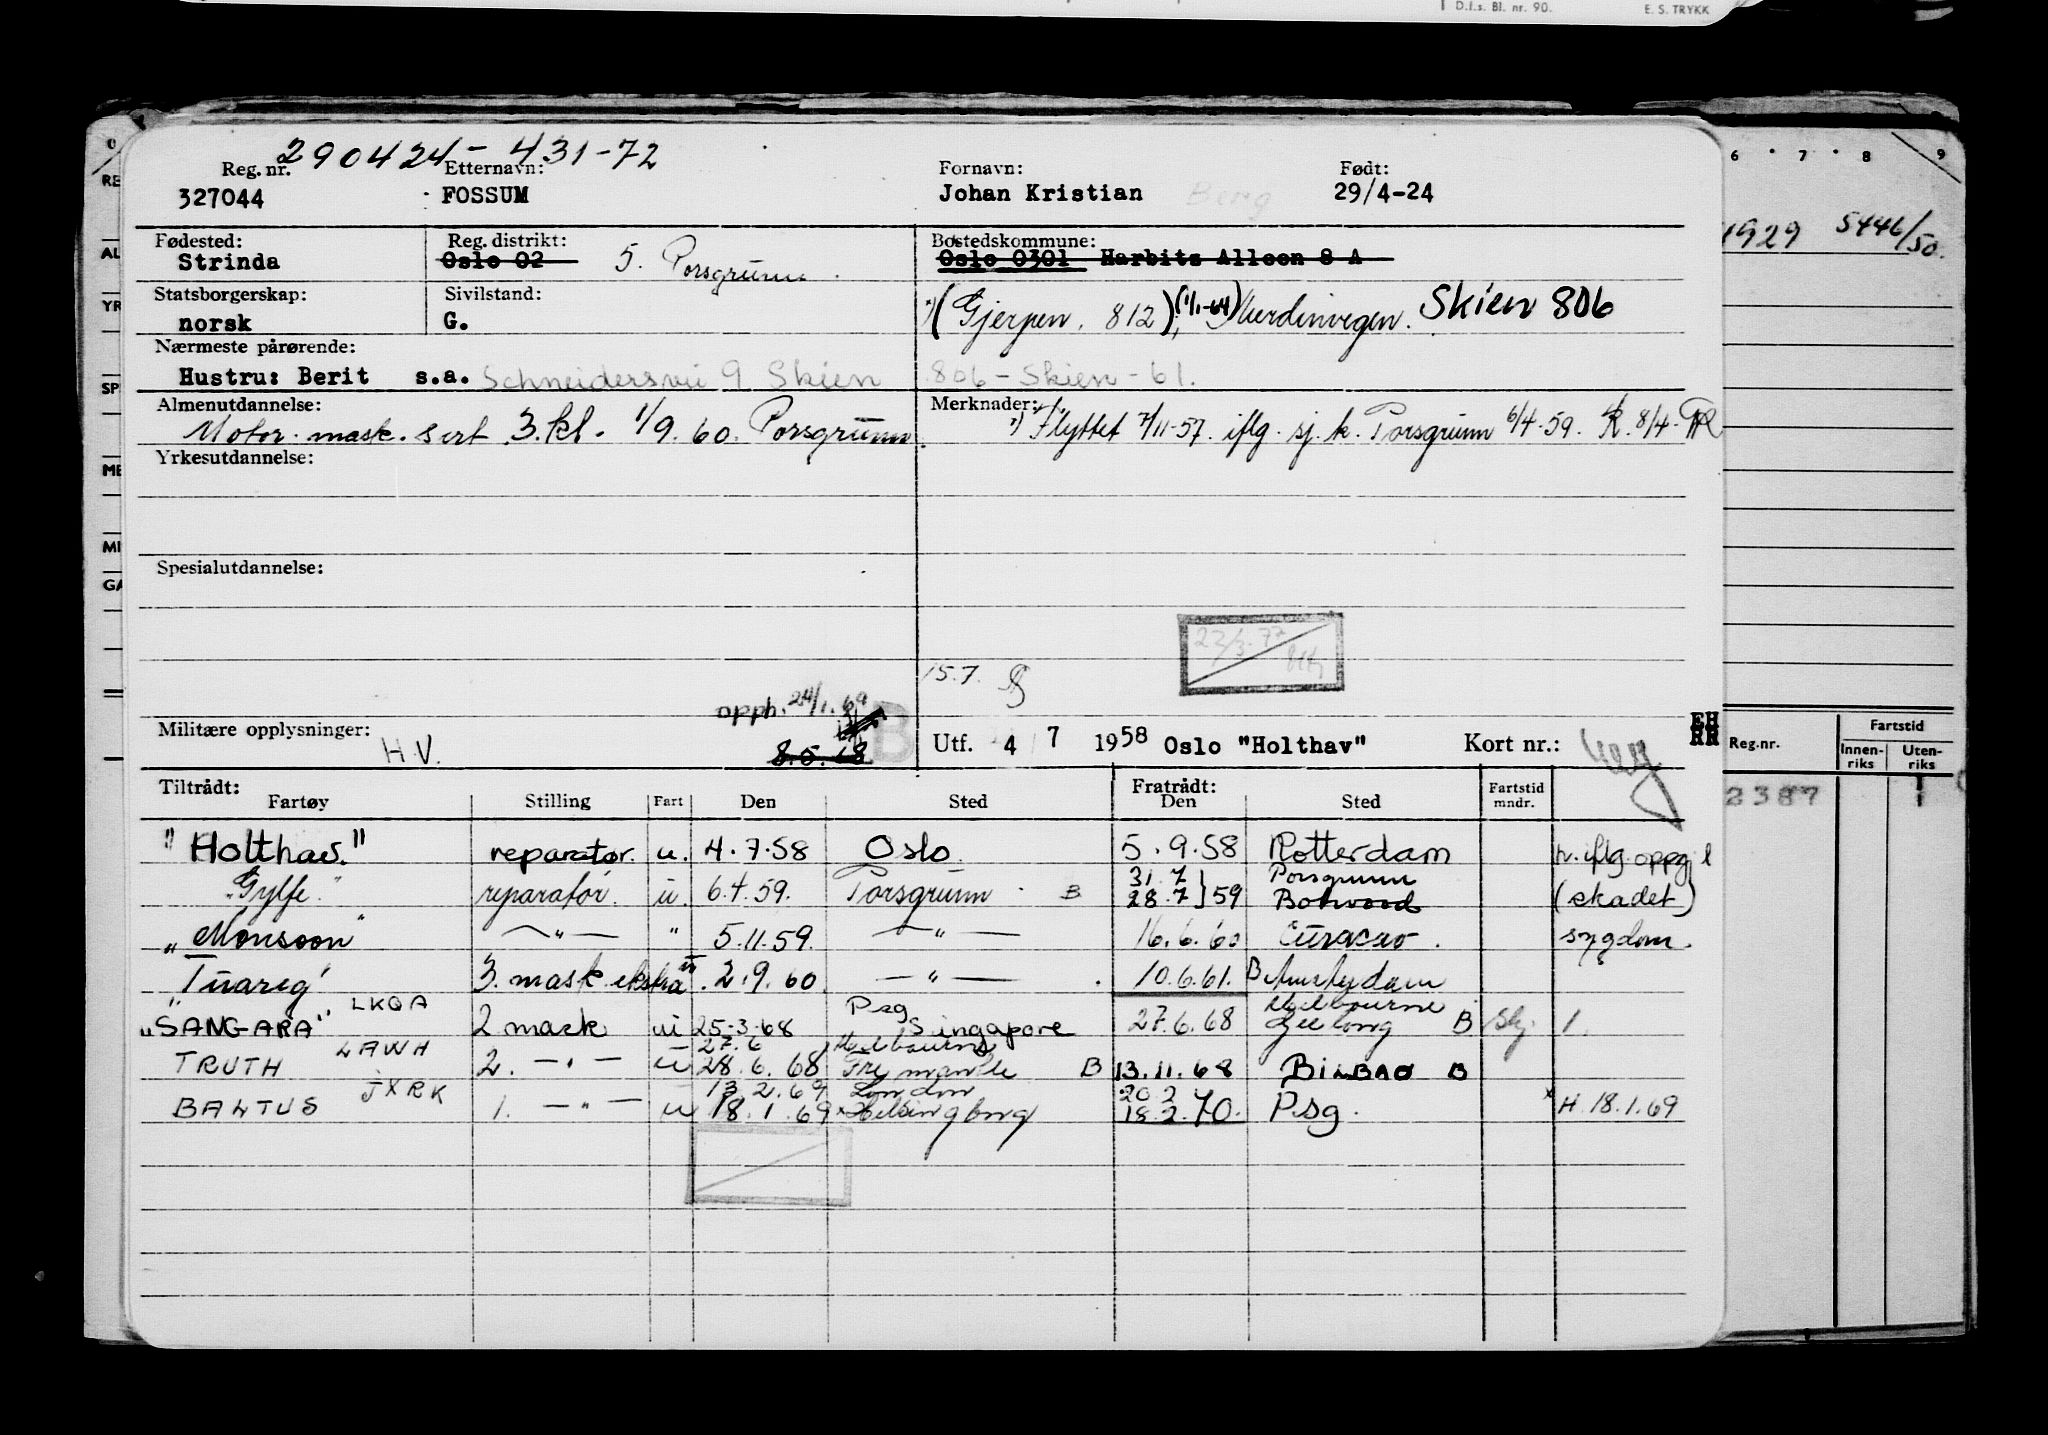 D.f.s. Bl. nr. 90. E. S. TRYKK
290424-431-72
Reg. nr. Etternavn: Fornavn: Født:
327044 FOSSUM Johan Kristian Berg 29/4-24
Fødested: Reg. distrikt: Bostedskommune:
Strinda Oslo 02 5. Porsgrunn. Oslo 0301 Harbits Alleen 8 A
Statsborgerskap: Sivilstand:
norsk G. (Gjerpen, 812) (1/1-64) Skien 806
Nærmeste pårørende:
Hustru: Berit s.a. Schneidersvei 9 Skien 806 - Skien - 61.
Almenutdannelse: Merknader:
Motor. mask. sert 3. kl. 1/9. 60. Porsgrunn. Flyttet 7/11-57. iflg. sj. k. Porsgrunn 6/4-59. 8/4-
Yrkesutdannelse:
Spesialutdannelse:
22/3-77
15.7.
opph. 24/1. 69
Militære opplysninger: H V. 8.5.68 B Utf. 4 7 1958 Oslo "Holthav" Kort nr.:
Tiltrådt: Fratrådt:
Fartøy Stilling Fart Den Sted Den Sted Fartstid mndr.
"Holthav." reparatør. u. 4.7.58 Oslo. 5.9.58 Rotterdam h. iflg. oppg
31.7 Porsgrunn
"Gylfe." reparatør. u. 6.4.59. Porsgrunn B 28.7 } 59 Botwood (skadet)
"Monsoon" — " — " 5.11.59. — " — 16.6.60 Curacao. sygdom.
"Tuareg" 3. mask. ekstra u. 2.9.60 — " — 10.6.61. B
LKQA Psg Melbourne
"SANGARA" 2 mask u 25-3-68 Singapore 27.6.68 Geelong B 1.
LAWH 27.6 Melbourne
TRUTH 2. — " — u 28.6.68 Fremantle B 13.11.68 BILBAO B
JXRK 13.2.69 London 20 2
BALTUS 1. — " — u 18.1.69 x Helsingborg 18.2.70. Psg. x H. 18.1.69
6 7 8 9
1929 5446/50.
EH
RR
Reg.nr. Fartstid
Innenriks Utenriks
2387 1